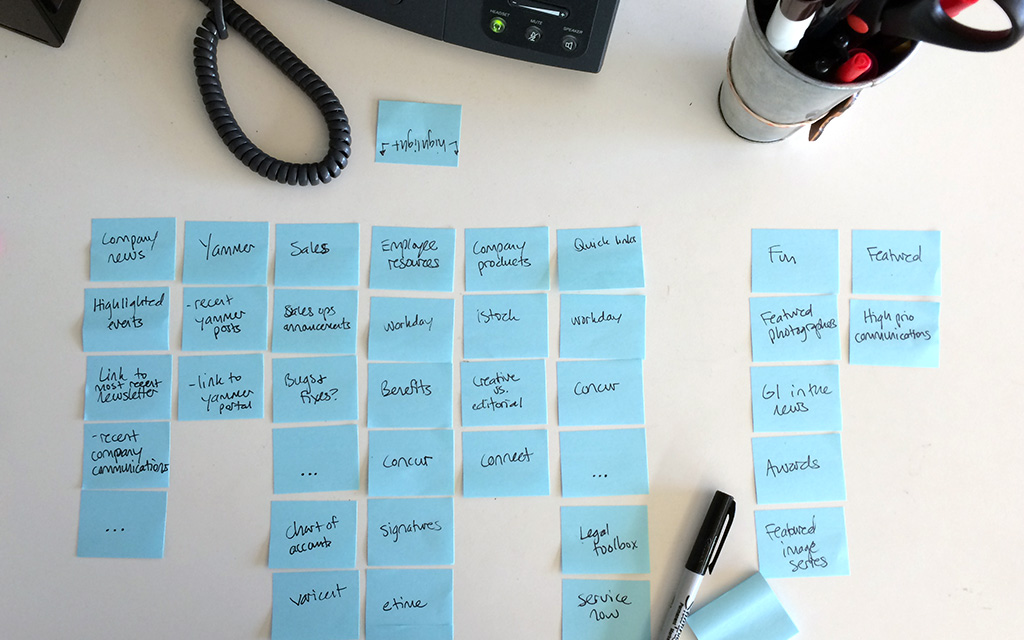 HEADSET
MUTE
SPEAKER
highlight
Company
news
Highlighted
events
Link to
most recent
newsletter
-recent
company
communications
...
Yammer
-recent
yammer
posts
-link to
yammer
portal
Sales
Sales ops
annoucements
Bugs &
fixes?
...
Chart of
accounts
Varicent
Employee
resources
workday
Benefits
Concur
signatures
etime
Company
products
iStock
Creative
vs.
editorial
Connect
Quick links
workday
Concur
...
Legal
toolbox
Service
now
Fun
Featured
photographers
GI in the
news
Awards
Featured
image
series
Featured
High prio
communications
Sharpie